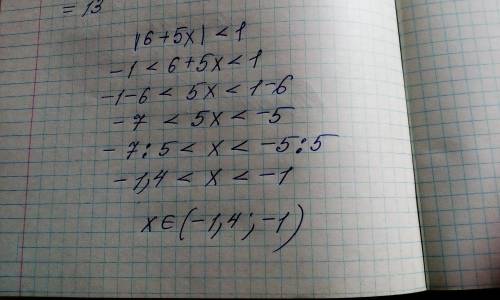 = 13
|6+5x| < 1
-1 < 6+5x < 1
-1-6 < 5x < 1-6
-7 < 5x < -5
-7:5 < x < -5:5
-1,4 < x < -1
x∈(-1,4; -1)